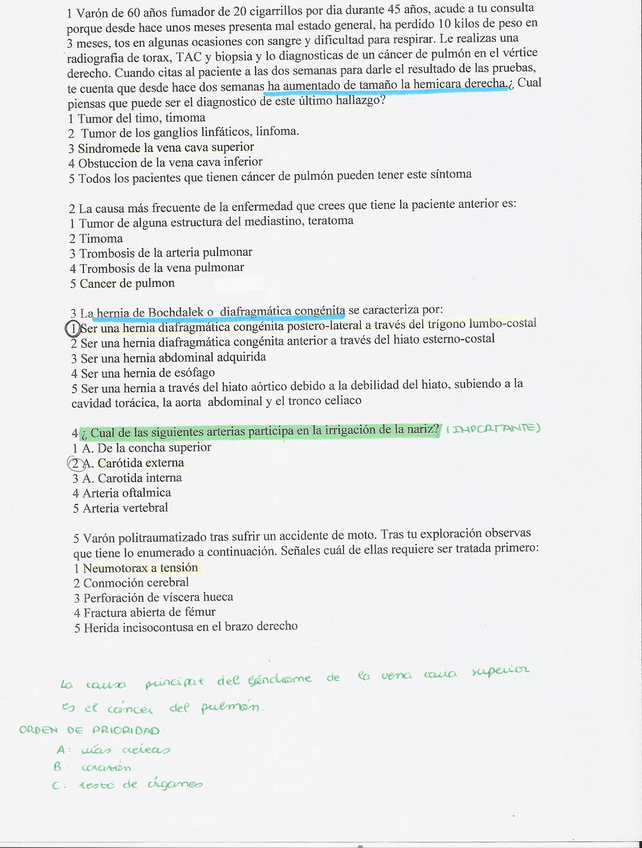 1 Varón de 60 años fumador de 20 cigarrillos por dia durante 45 años, acude a tu consulta
porque desde hace unos meses presenta mal estado general, ha perdido 10 kilos de peso en
3 meses, tos en algunas ocasiones con sangre y dificultad para respirar. Le realizas una
radiografia de torax, TAC y biopsia y lo diagnosticas de un cáncer de pulmón en el vértice
derecho. Cuando citas al paciente a las dos semanas para darle el resultado de las pruebas,
te cuenta que desde hace dos semanas ha aumentado de tamaño la hemicara derecha.¿ Cual
piensas que puede ser el diagnostico de este último hallazgo?
1 Tumor del timo, timoma
2 Tumor de los ganglios linfáticos, linfoma.
3 Sindromede la vena cava superior
4 Obstuccion de la vena cava inferior
5 Todos los pacientes que tienen cáncer de pulmón pueden tener este síntoma
2 La causa más frecuente de la enfermedad que crees que tiene la paciente anterior es:
1 Tumor de alguna estructura del mediastino, teratoma
2 Timoma
3 Trombosis de la arteria pulmonar
4 Trombosis de la vena pulmonar
5 Cancer de pulmon
3 La hernia de Bochdalek o diafragmática congénita se caracteriza por:
1 Ser una hernia diafragmática congénita postero-lateral a través del trígono lumbo-costal
2 Ser una hernia diafragmática congénita anterior a través del hiato esterno-costal
3 Ser una hernia abdominal adquirida
4 Ser una hernia de esófago
5 Ser una hernia a través del hiato aórtico debido a la debilidad del hiato, subiendo a la
cavidad torácica, la aorta abdominal y el tronco celiaco
4 ¿ Cual de las siguientes arterias participa en la irrigación de la nariz? (IMPORTANTE)
1 A. De la concha superior
2 A. Carótida externa
3 A. Carotida interna
4 Arteria oftalmica
5 Arteria vertebral
5 Varón politraumatizado tras sufrir un accidente de moto. Tras tu exploración observas
que tiene lo enumerado a continuación. Señales cuál de ellas requiere ser tratada primero:
1 Neumotorax a tensión
2 Conmoción cerebral
3 Perforación de víscera hueca
4 Fractura abierta de fémur
5 Herida incisocontusa en el brazo derecho
La causa principal del síndrome de la vena cava superior
es el cáncer del pulmón.
ORDEN DE PRIORIDAD:
A: vías aéreas
B: corazón
C: resto de órganos